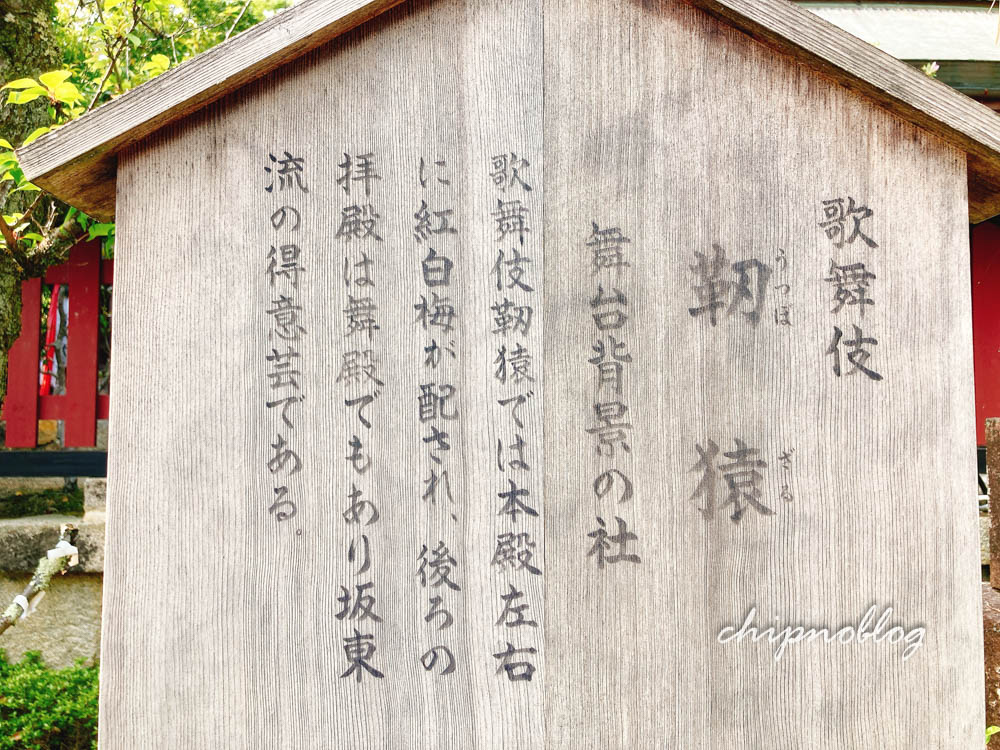 歌舞伎
靭猿
うつぼ
ざる
舞台背景の社
歌舞伎靭猿では本殿左右
に紅白梅が配され、後ろの
拝殿は舞殿でもあり坂東
流の得意芸である。
chipnoblog